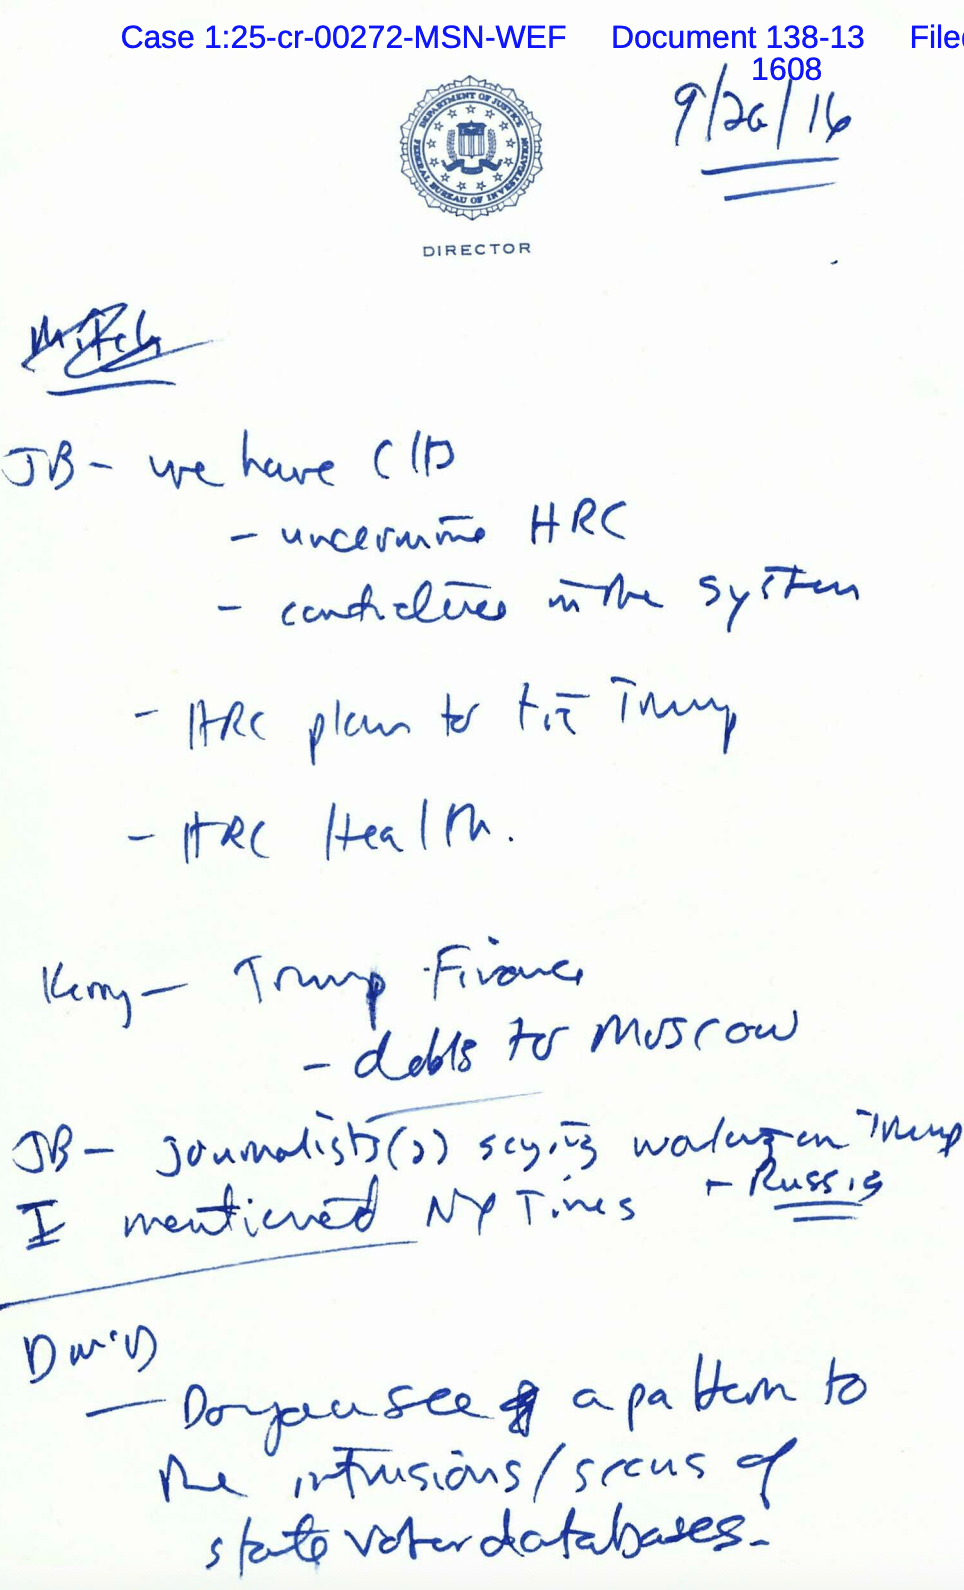 Case 1:25-cr-00272-MSN-WEF Document 138-13 Filed
1608
9/26/16
DEPARTMENT OF JUSTICE
FEDERAL BUREAU OF INVESTIGATION
DIRECTOR
Mitch
JB - we have CIA
- undermine HRC
- candidates in the system
- HRC plan to tie Trump
- HRC Health.
Kerry - Trump Finance
- debts to Moscow
JB - journalists(s) saying working on Trump
+ Russia
I mentioned NY Times
- Do you see a pattern to
the intrusions/scans of
state voter databases.